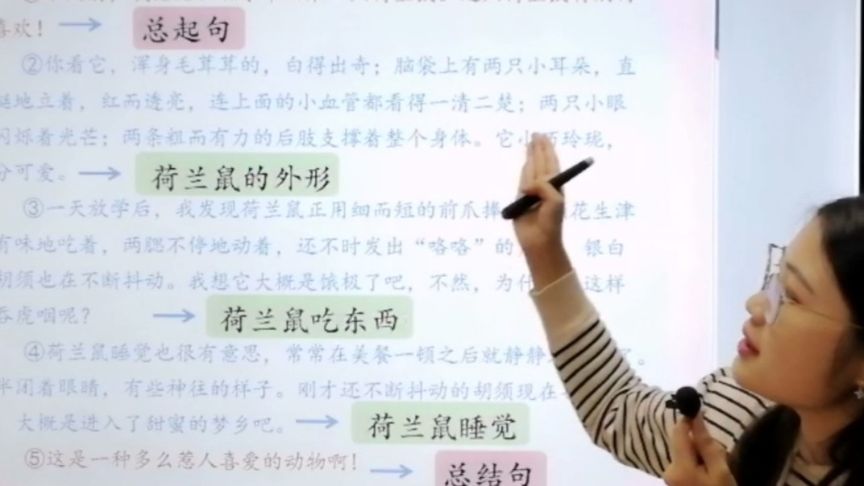 喜欢！ → 总起句
②你看它，浑身毛茸茸的，白得出奇；脑袋上有两只小耳朵，直
挺地立着，红而透亮，连上面的小血管都看得一清二楚；两只小眼
闪烁着光芒；两条粗而有力的后肢支撑着整个身体。它小巧玲珑，
分可爱。 → 荷兰鼠的外形
③一天放学后，我发现荷兰鼠正用细而短的前爪捧 花生津
有味地吃着，两腮不停地动着，还不时发出“咯咯”的 银白
胡须也在不断抖动。我想它大概是饿极了吧，不然，为什 这样
吞虎咽呢？ → 荷兰鼠吃东西
④荷兰鼠睡觉也很有意思，常常在美餐一顿之后就静静 了。
半闭着眼睛，有些神往的样子。刚才还不断抖动的胡须现在
大概是进入了甜蜜的梦乡吧。 → 荷兰鼠睡觉
⑤这是一种多么惹人喜爱的动物啊！ → 总结句